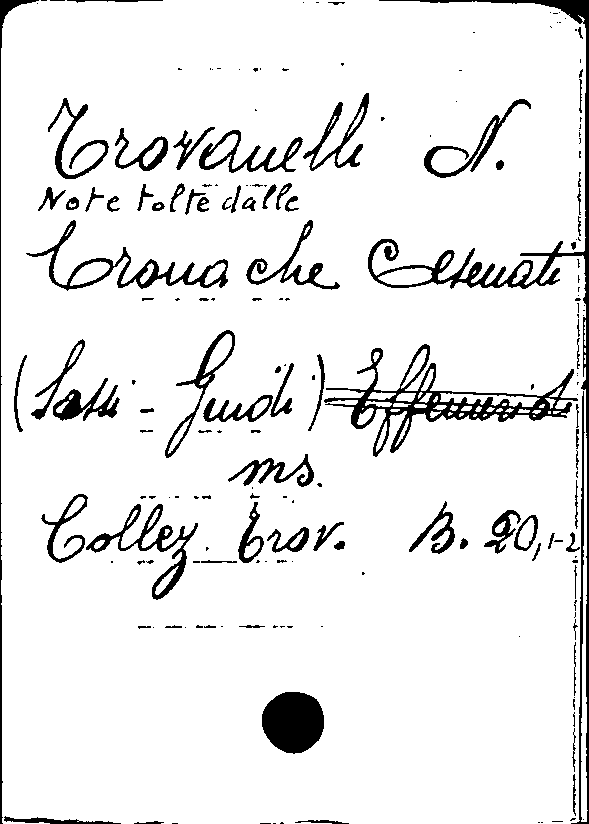 Trovanelli N.
Note tolte dalle
Cronache Cesenati
(Sassi - Guidi) Effemeridi
ms.
Collez. Trov. B. 20,1-2